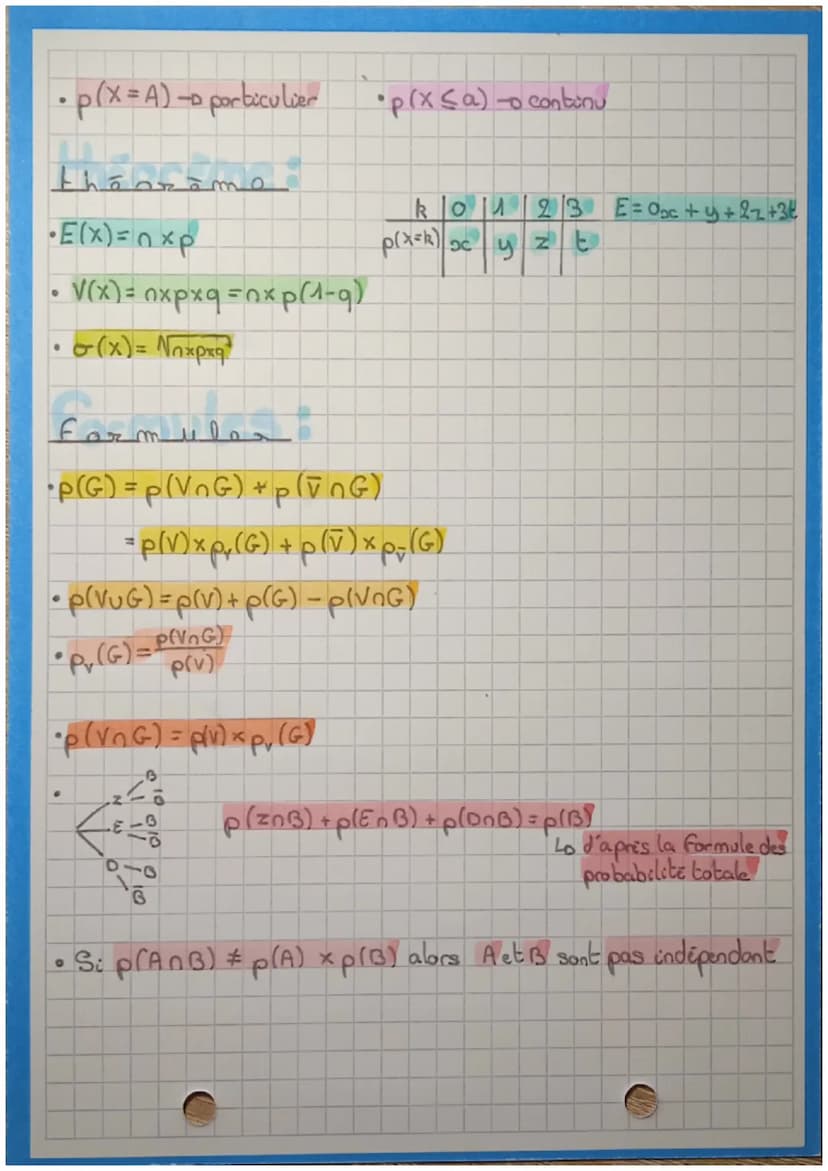 • p(X=A) → particulier • p(X≤a) → continu
théorème :
k | 0 | 1 | 2 | 3 E=0x+y+2z+3t
• E(X)= n×p p(X=k) | x | y | z | t
• V(X)= n×p×q = n×p(1-q)
• σ(X)= √n×p×q
formules :
• p(G) = p(V∩G) + p(V̄∩G)
= p(V)×pᵥ(G) + p(V̄)×p_V̄(G)
• p(V∪G)=p(V)+p(G)-p(V∩G)
• pᵥ(G)= p(V∩G)/p(V)
• p(V∩G) = p(V)×pᵥ(G)
• Z B B̄
E B B̄
D B B̄
p(Z∩B)+p(E∩B)+p(D∩B)=p(B)
↳ d'après la formule des
probabilité totale
• Si p(A∩B) ≠ p(A) × p(B) alors A et B sont pas indépendant